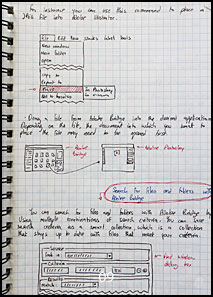 For instance you can use this command to place a
JPEG file into Adobe Illustrator.
File Edit View Stacks Label Tools
New window
New folder
Open
Copy to
Export to
Place
In Photoshop
In
Drag a file from Adobe Bridge into the desired application
Depending on the file, the document into which you want to
place the file may need to be opened first.
Adobe
Bridge
Adobe Photoshop
Search for files and folders with
Adobe Bridge
You can search for files and folders with Adobe Bridge by
using multiple combinations of search criteria. You can save
search criteria as a smart collection, which is a collection
that stays up to date with files that meet your criteria.
Source
Look in:
Criteria
Find window
dialog box
Results
Match: